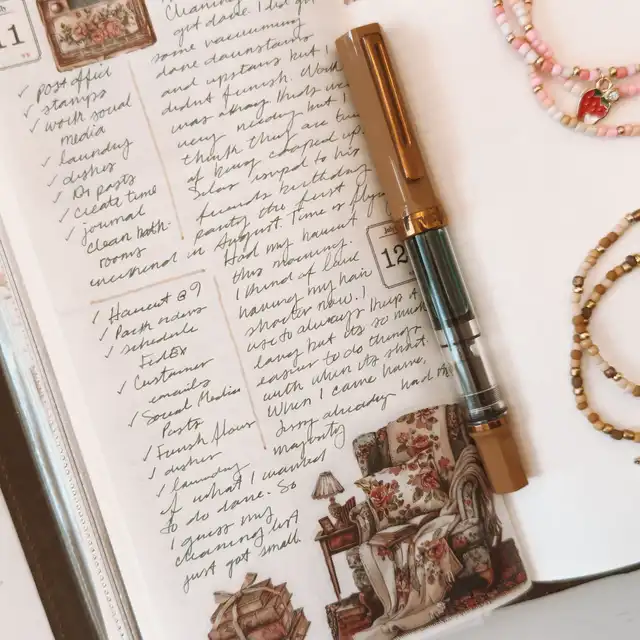 11
✓ post office
✓ stamps
✓ work social
media
✓ laundry
✓ dishes
✓ posts
✓ create time
✓ journal
clean bath
rooms
Cleaning
got done. I did get
some vacuuming
done downstairs
and upstairs but I
didnt finish.
was
very needy but I
think they are
of being cooped up
invited to his
friends birthday
party the first
weekend in August. Time is flying
12
✓ Haircut @ 9
✓ Pack orders
✓ schedule
FedEx
✓ Customer
emails
✓ Social Media
Posts
✓ Finish floors
✓ dishes
✓ laundry
Had my haircut
this morning.
I kind of love
having my hair
shorter now. I
use to always keep it
long but its so much
easier to do things
with when its short.
When I came home,
already had the
majority
of what I wanted
to do done. So
I guess my
cleaning list
just got small.